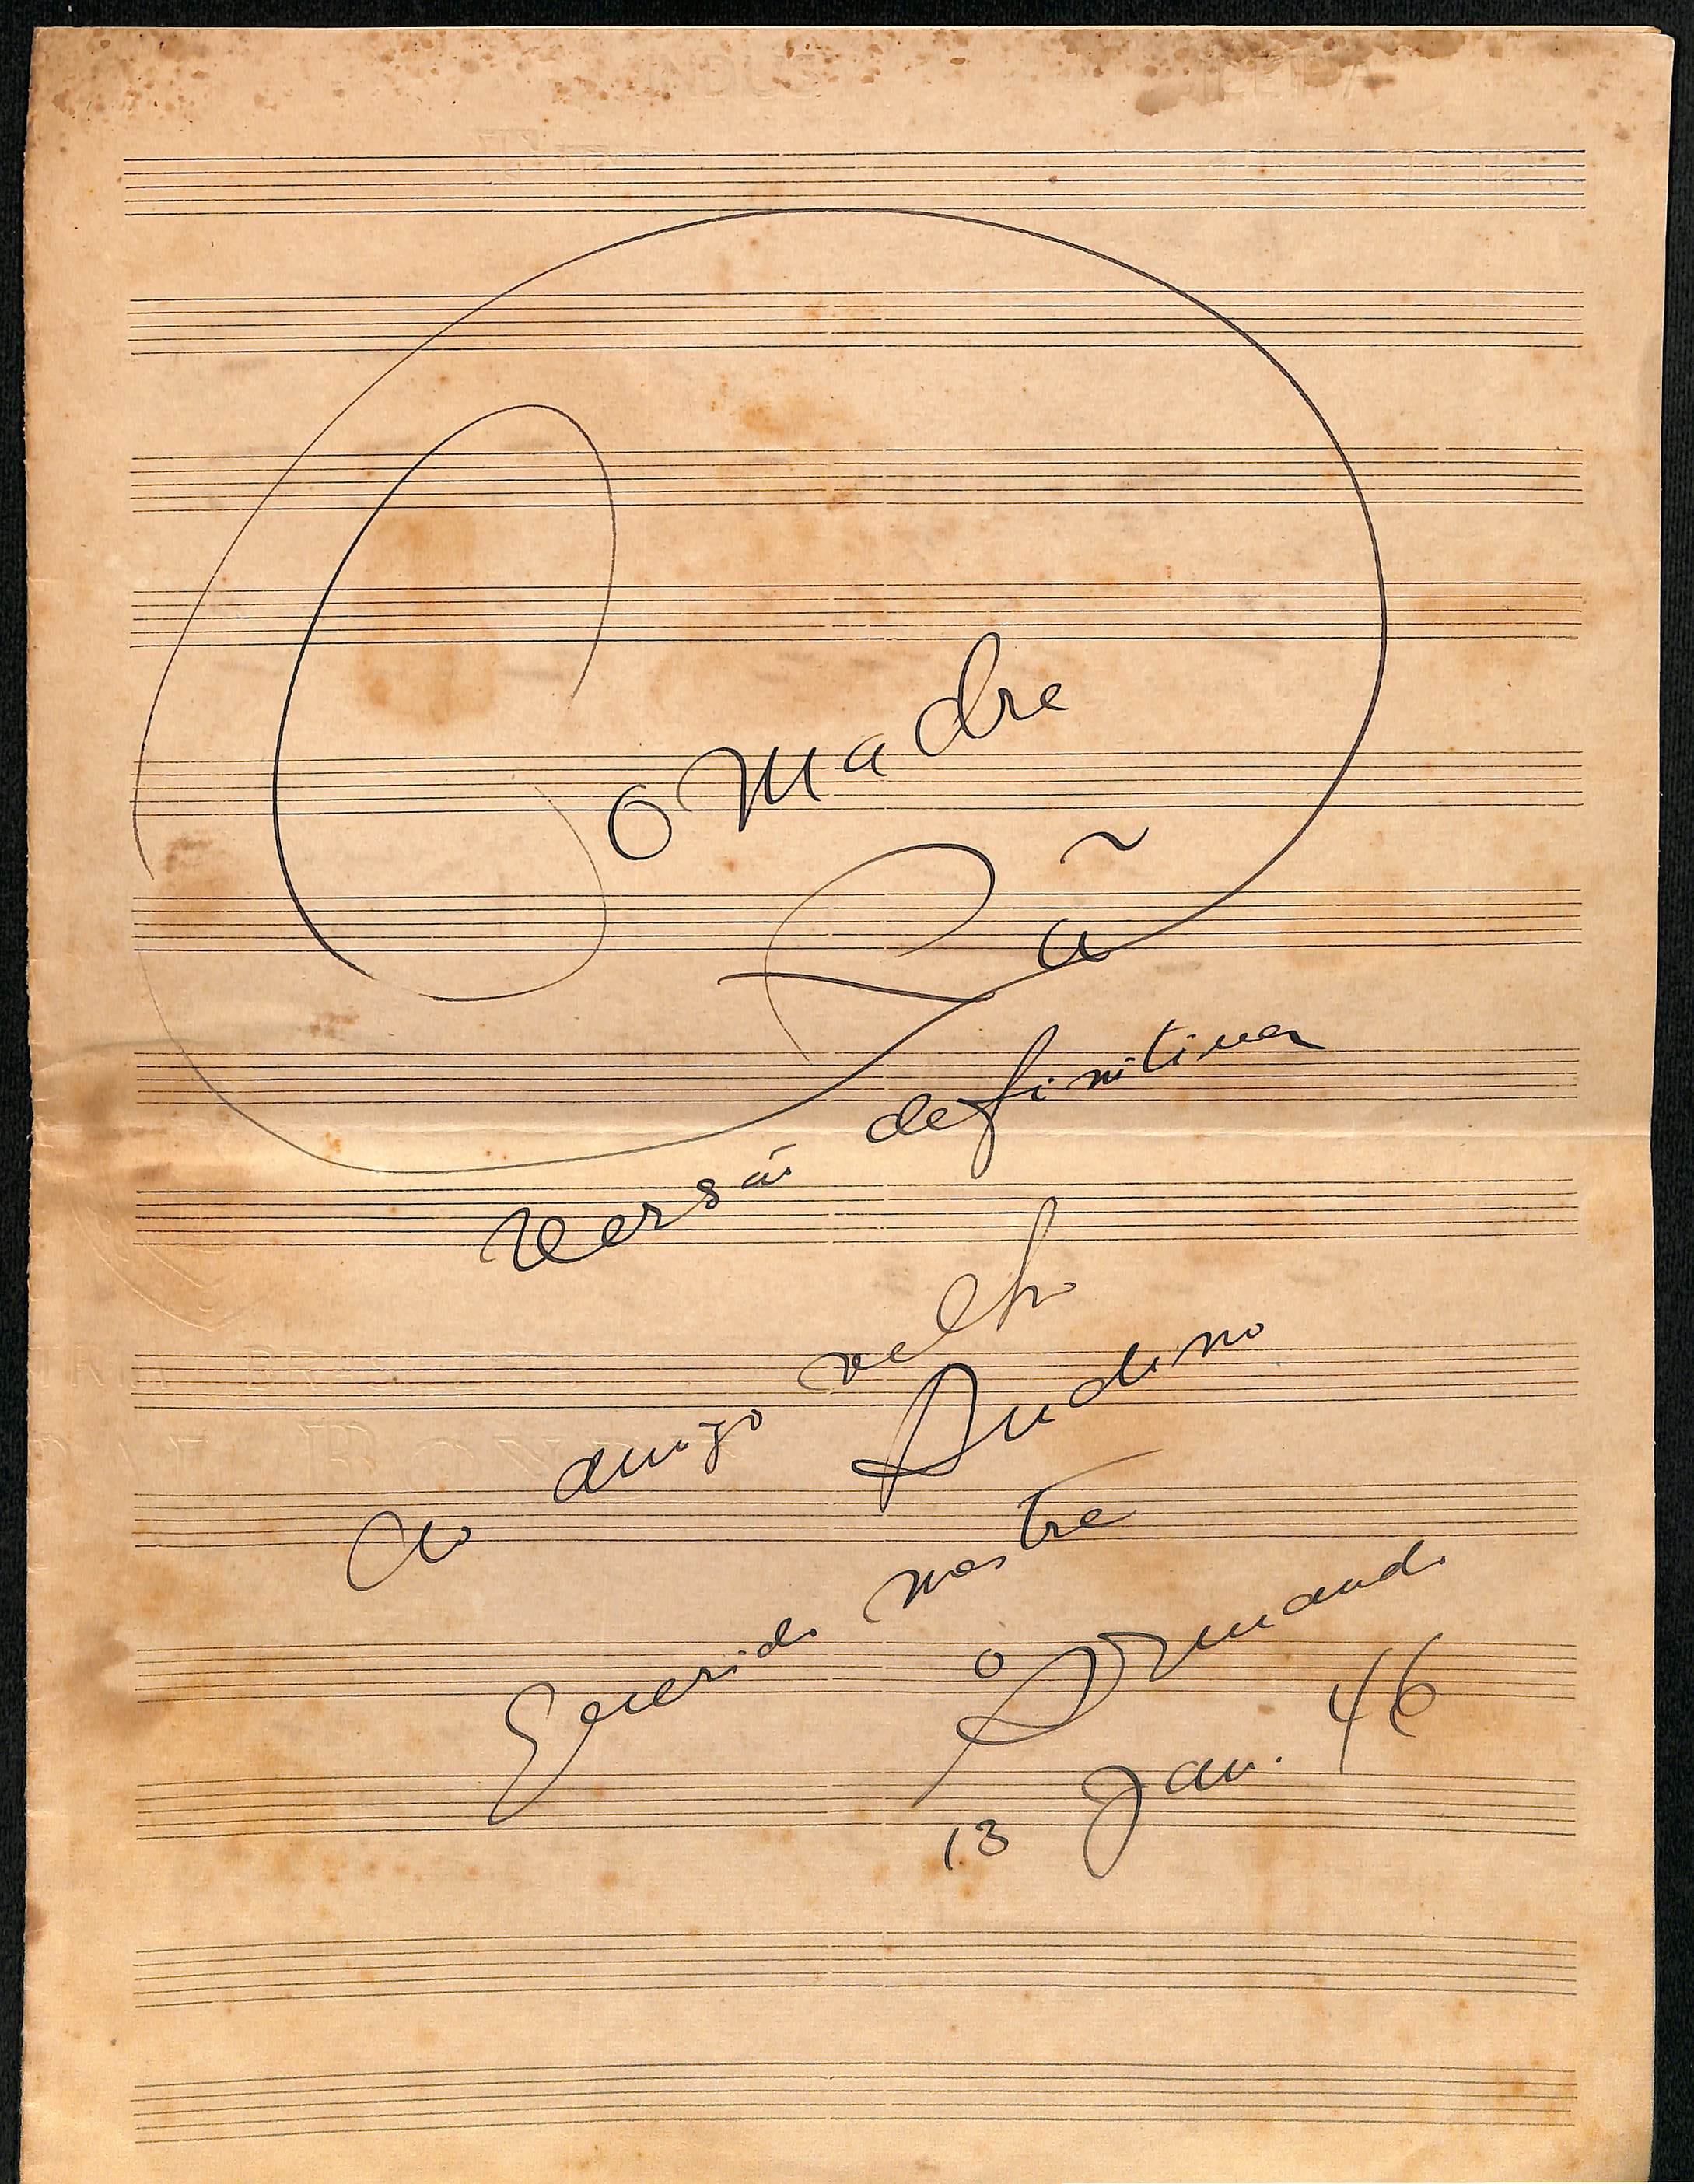 Comadre
Rã
versão definitiva
Ao amigo velho
Andino
Querido mestre
o Armando
13 Jan. 46